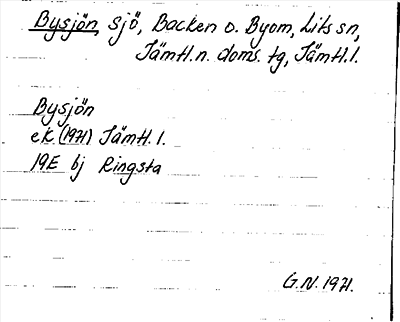 Bysjön, sjö, Backen o. Byom, Lits sn,
Jämtl.n. doms. tg, Jämtl.l.
Bysjön
ek (1971) Jämtl. l.
19E bj Ringsta
G.N. 1971.